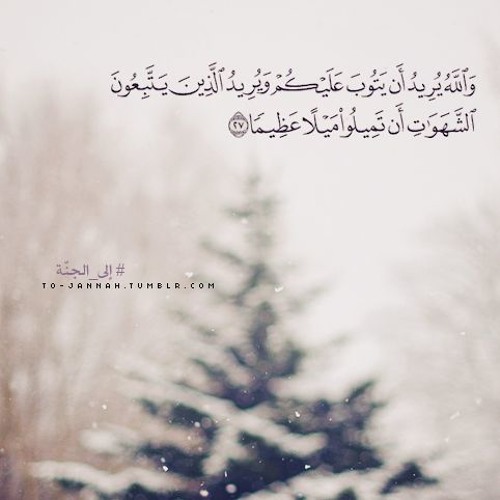 وَٱللَّهُ يُرِيدُ أَن يَتُوبَ عَلَيْكُمْ وَيُرِيدُ ٱلَّذِينَ يَتَّبِعُونَ
ٱلشَّهَوَٰتِ أَن تَمِيلُوا۟ مَيْلًا عَظِيمًا ٢٧
# إلى_الجنّة
TO-JANNAH.TUMBLR.COM